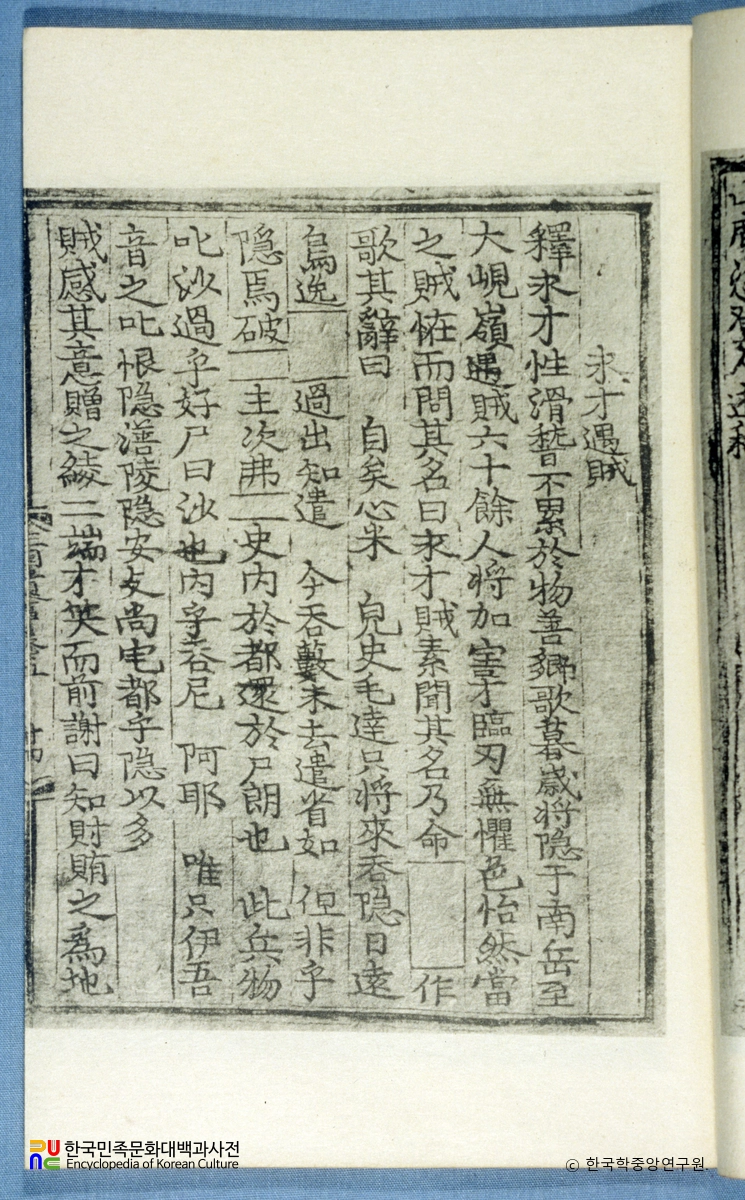 永才遇賊
釋永才性滑稽不累於物善鄕歌暮歲將隐于南岳至
大峴嶺遇賊六十餘人將加害才臨刃無懼色怡然當
之賊恠而問其名曰永才賊素聞其名乃命 作
歌其辭曰 自矣心米 皃史毛達只將來呑隐日遠
烏逸 過出知遣 今呑藪未去遣省如 但非乎
隐焉破 主次弗 史內於都還於尸朗也 此兵物
叱沙過乎好尸曰沙也內乎呑尼 阿耶 唯只伊吾
音之叱恨隐㵛陵隐安攴尚宅都乎隐以多
賊感其意贈之綾二端才笑而前謝曰知財賄之爲地
한국민족문화대백과사전
Encyclopedia of Korean Culture
© 한국학중앙연구원